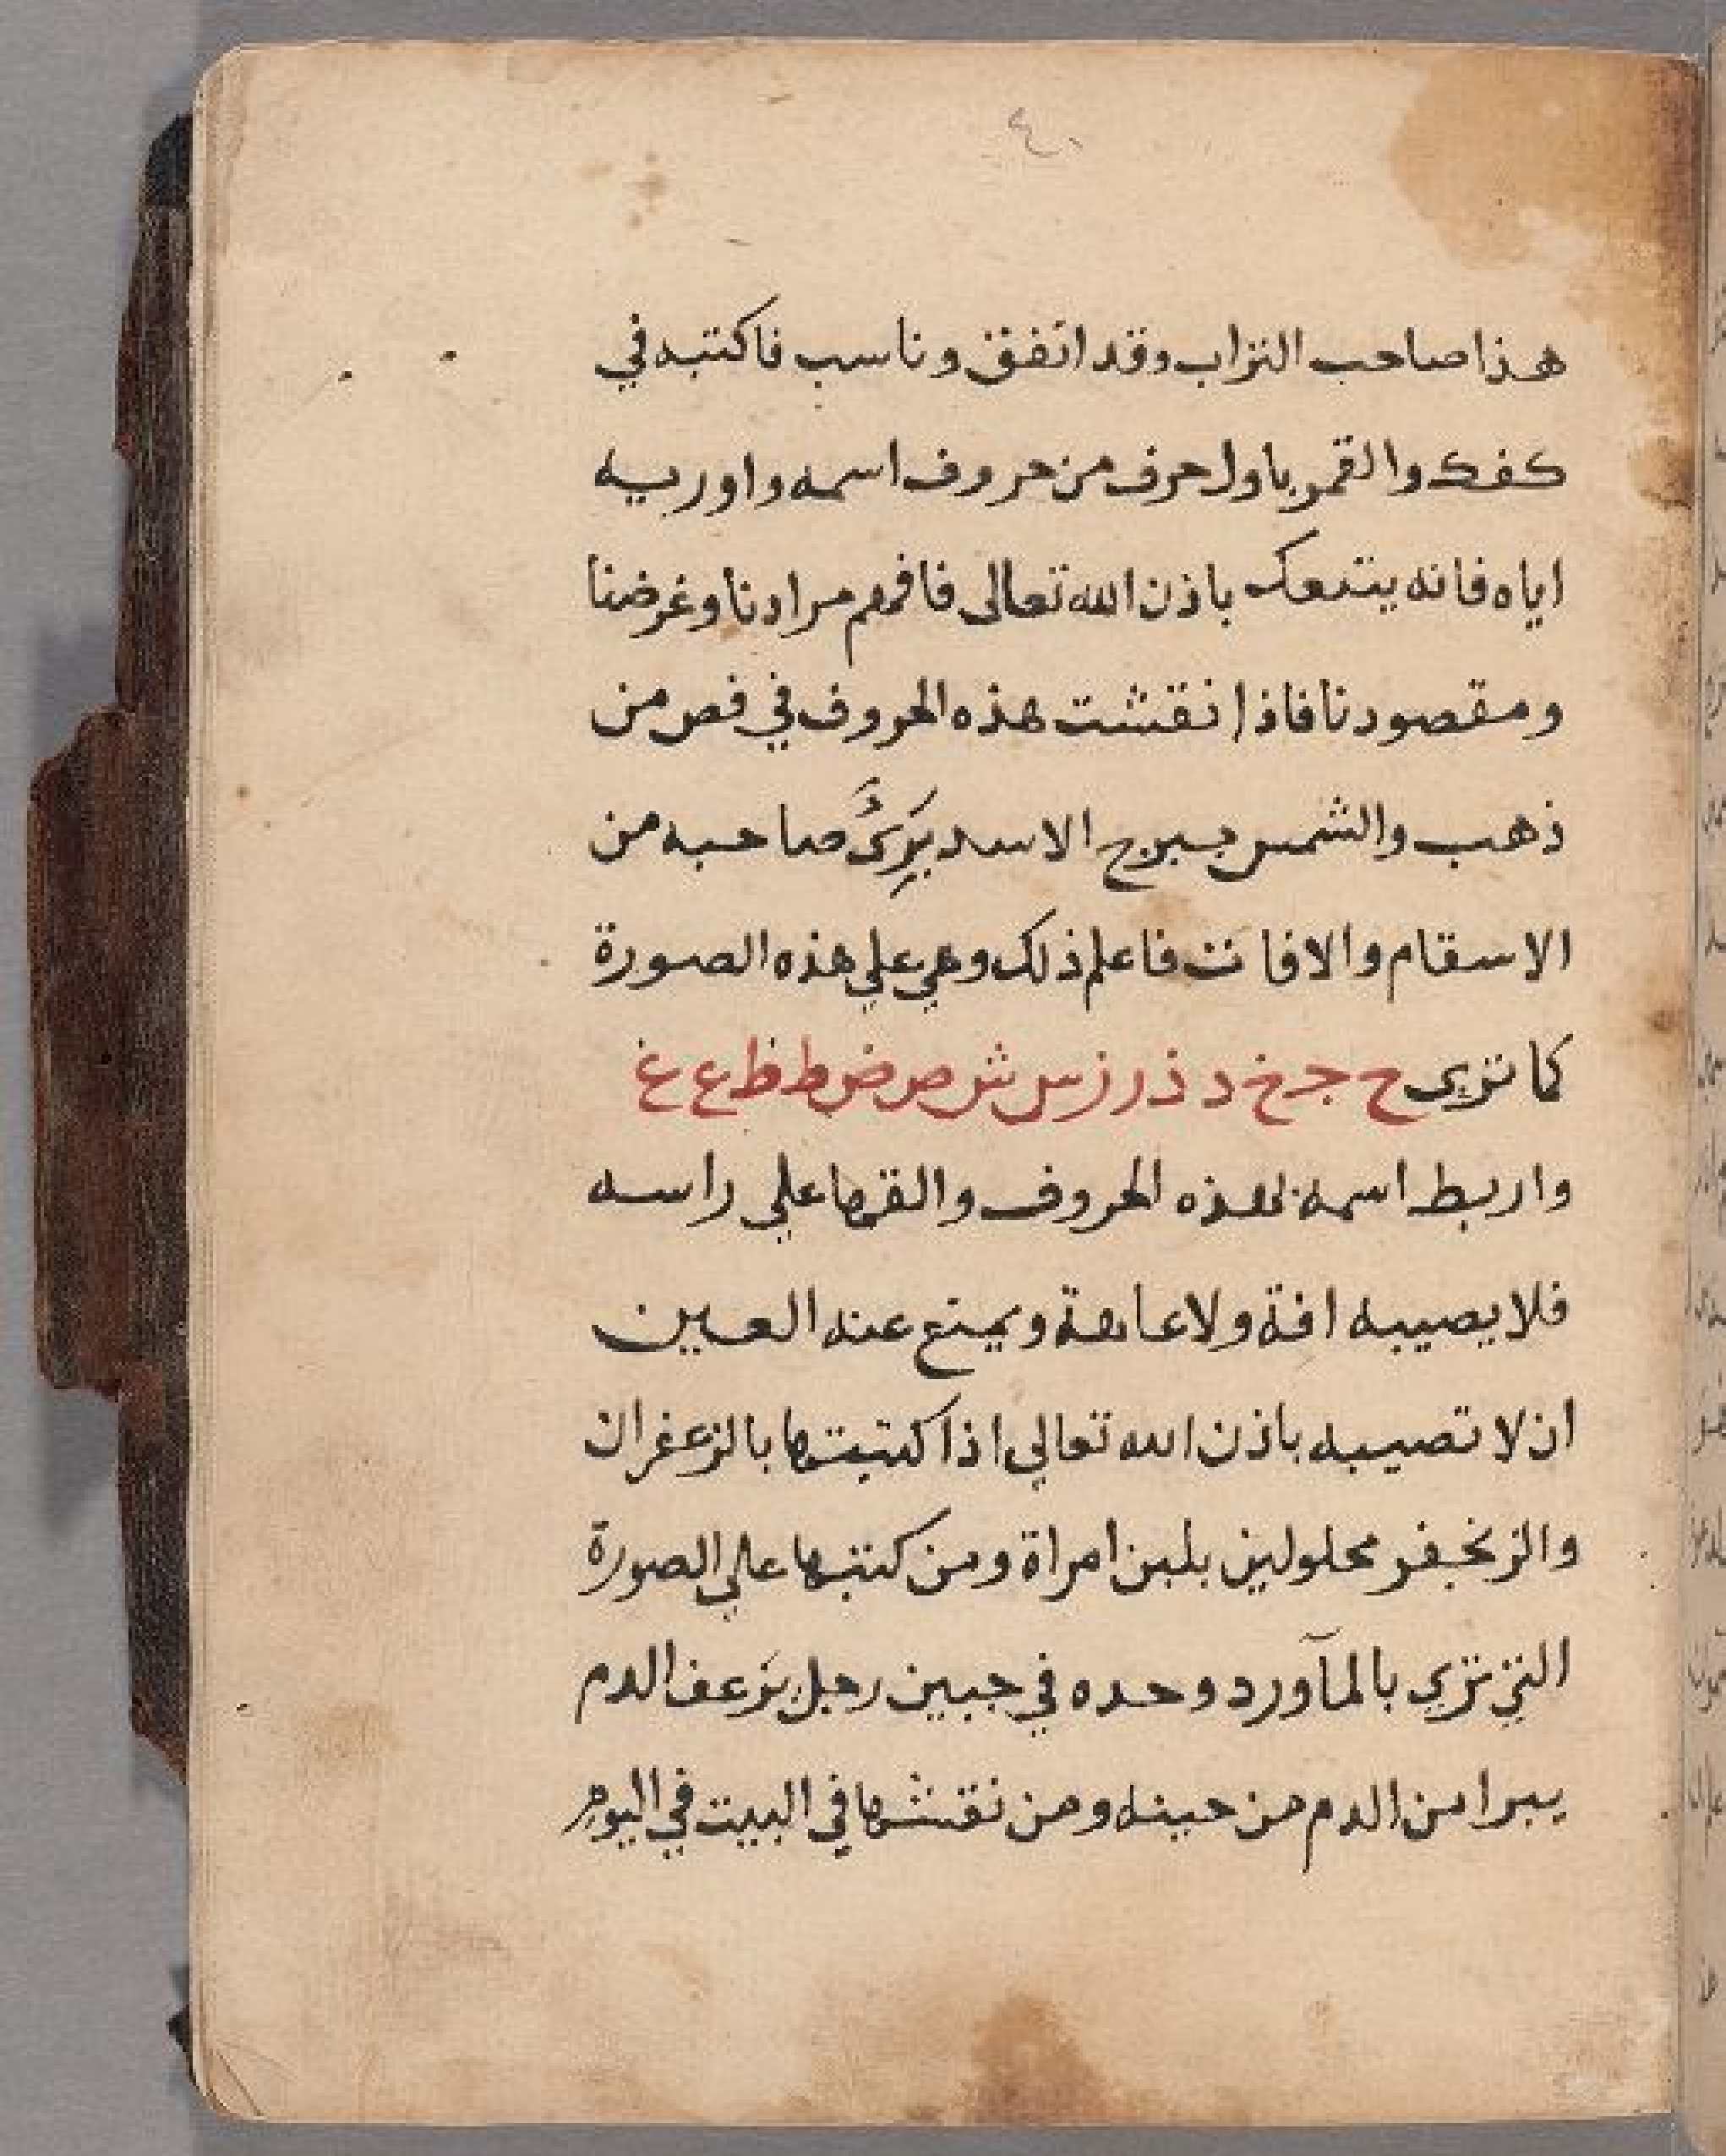 ٤٠
هذا صاحب التراب وقد اتفق وناسب فاكتبه في
كفك والقمر باول حرف من حروف اسمه واوريه
اياه فانه يتبعك باذن الله تعالى فافهم مرادنا وغرضنا
ومقصودنا فاذا نقشت هذه الحروف في فص من
ذهب والشمس ببرج الاسد يرى صاحبه من
الاسقام والافات فاعلم ذلك وهي علي هذه الصورة
كما تري ح ج خ د ذ ر ز س ش ص ض ط ظ ع غ
واربط اسمه بهذه الحروف والقها علي راسه
فلا يصيبه افة ولا عاهة ويمنع عنه العين
ان لا تصيبه باذن الله تعالي اذا كتبتها بالزعفران
والزنجفر محلولين بلبن امراة ومن كتبها علي الصورة
التي تري بالمآورد وحده في جبين رجل يرعف الدم
يبرا من الدم من حينه ومن نقشها في البيت في اليوم